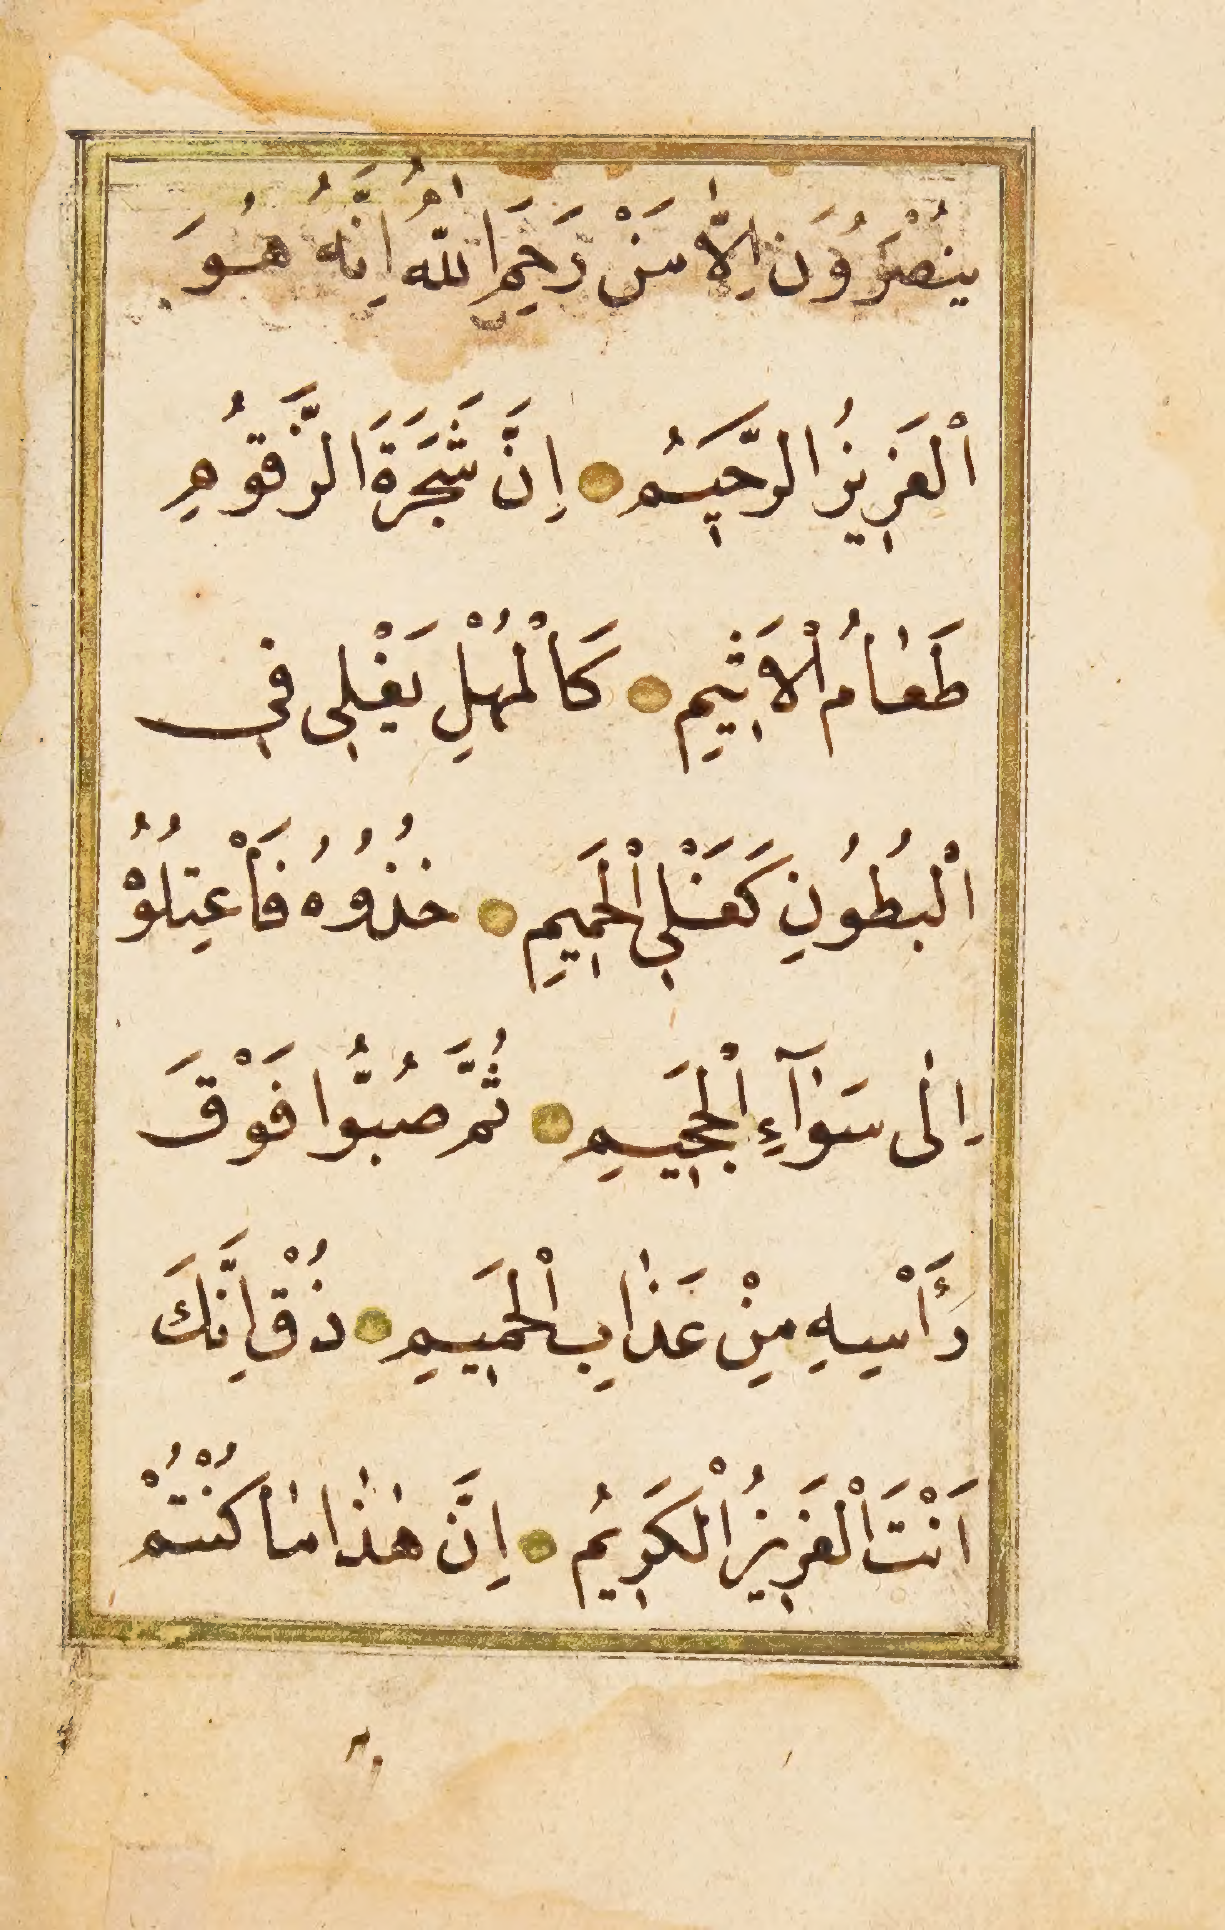 يُنْصَرُوُنَ اِلَّا مَنْ رَحِمَ اللّٰهُ اِنَّهُ هُوَ
اَلْعَزِيزُ الرَّحِيمُ اِنَّ شَجَرَةَ الزَّقُّومِ
طَعَامُ الْاَثِيمِ كَالْمُهْلِ يَغْلِى فِى
الْبُطُونِ كَغَلْىِ الْحَمِيمِ خُذُوهُ فَاْعْتِلُوْهُ
اِلٰى سَوَآءِ الْجَحِيمِ ثُمَّ صُبُّوا فَوْقَ
رَأْسِهِ مِنْ عَذَابِ الْحَمِيمِ ذُقْ اِنَّكَ
اَنْتَ الْعَزِيزُ الْكَرِيمُ اِنَّ هٰذَا مَا كُنْتُمْ